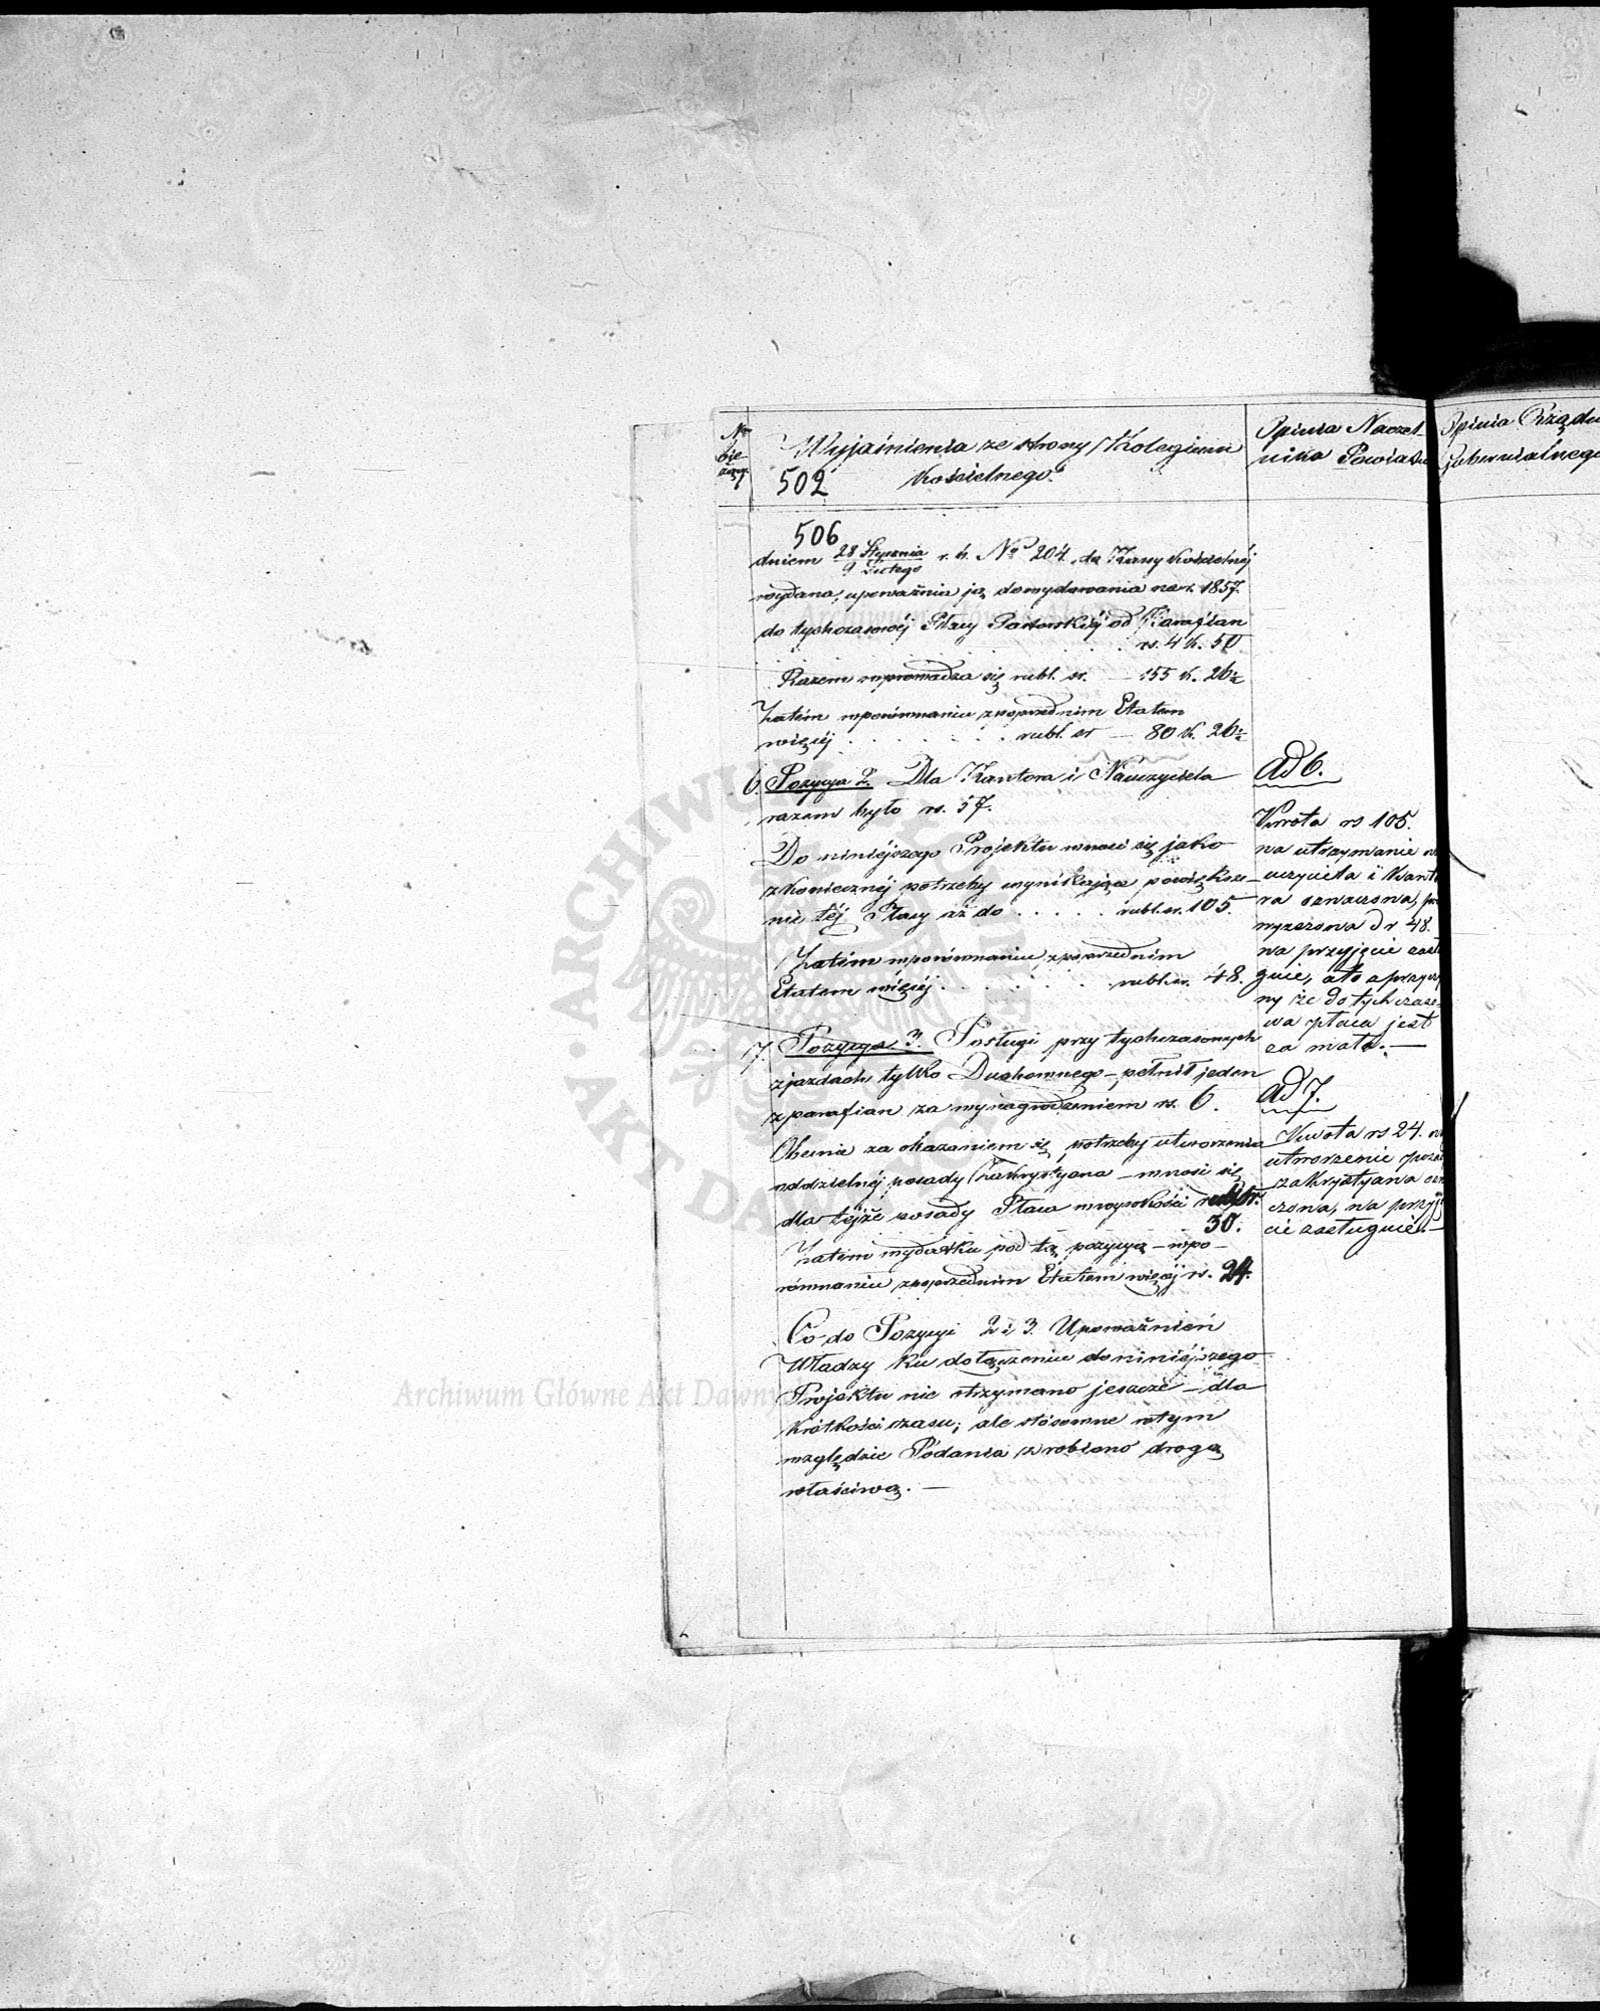 Nr bie- żący
Wyjaśnienia ze strony Kolegium
Kościelnego.
502
Opinia Naczel-
nika Powiatu
Opinia Rządu
Gubernialnego
506
dniem 28 Stycznia / 9 Lutego r. b. No 204, do Kassy Kościelnéj
wydana, upoważnia ją do wydawania na r. 1857.
do tychczasowéj Płacy Pastorskiéj od Parafian
rs. 4 k. 50
Razem wprowadza się rubl. sr. — 155 k. 26½
Zatém wporównaniu zpoprzednim Etatem
więcéj . . . . . . . rubl. sr — 80 k. 26½
6. Pozycya 2. Dla Kantora i Nauczyciela
razem było rs. 57.
Do niniéjszego Projektu wnosi się jako
zkoniecznéj potrzeby wynikające powiększe-
nie téj Płacy aż do . . . . . rubl. sr. 105.
Zatém wporównaniu zpoprzednim
Etatem więcéj . . . . . . . rubl. sr. 48.
7. Pozycya 3. Posługi przy tychczasowych
zjazdach tylko Duchownego — pełnił jeden
zparafian za wynagrodzeniem rs. 6.
Obecnie za okazaniem się potrzeby utworzenia
oddzielnéj posady Zakrystyana — wnosi się
dla téjże posady Płaca wwysokości rubl. sr.
30.
Zatém wydatku pod tą pozycyą — wpo-
równaniu zpoprzednim Etatem więcéj rs. 24.
Co do Pozycyi 2 i 3. Upoważnień
Władzy ku dołączeniu do niniéjszego
Projektu nie otrzymano jeszcze — dla
krótkości czasu; ale stósowne wtym
względzie Podania zrobiono drogą
właściwą. —
ad 6.
Kwota rs 105.
na utrzymanie na
uczyciela i Kanto
ra oznaczona, prze
wyższona o rs 48.
na przyjęcie zasłu
guje, a to z przyczy
ny że dotychczaso
wa płaca jest
za mała. —
ad 7.
Kwota rs 24. na
utworzenie posady
zakrystyana ozna
czona, na przyję
cie zasługuje. —
Archiwum Główne Akt Dawnych
ARCHIWUM GŁÓWNE AKT DAWNYCH